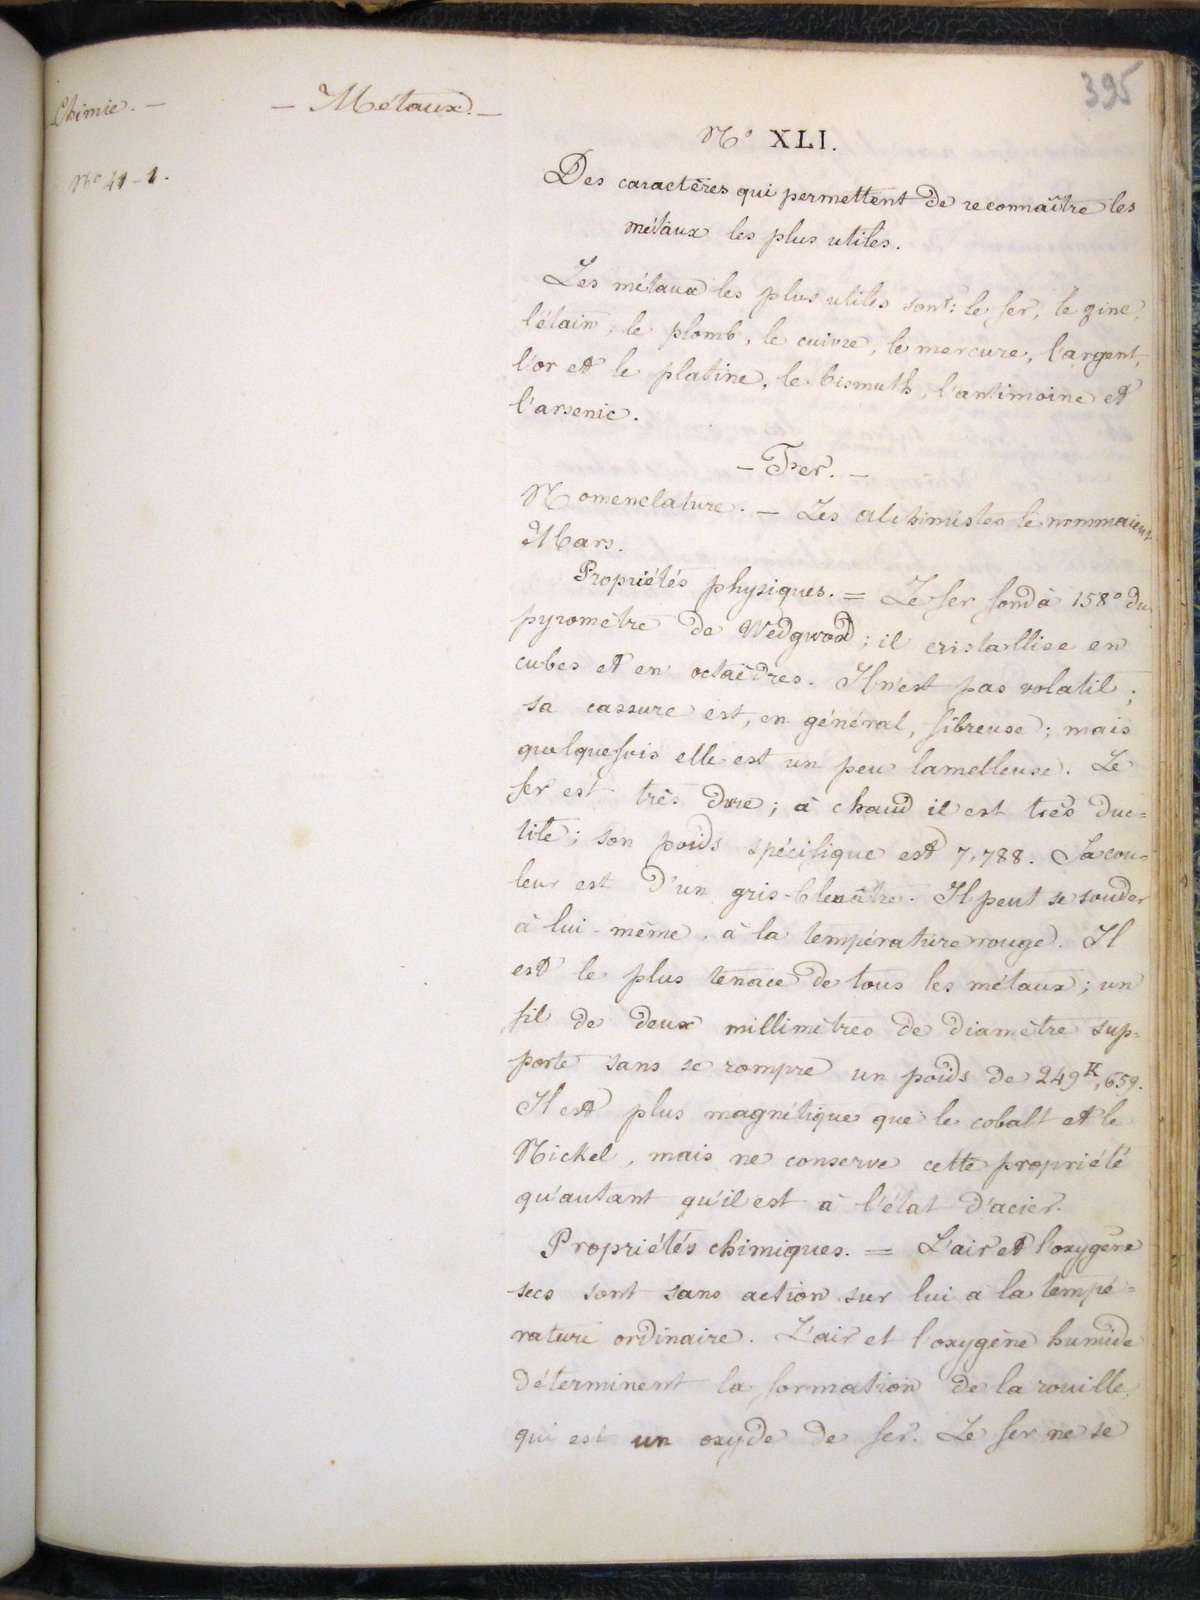 Chimie. —
— Métaux. —
395
No 41 - 1.
No XLI.
Des caractères qui permettent de reconnaître les
métaux les plus utiles.
Les métaux les plus utiles sont: le fer, le zinc,
l'étain, le plomb, le cuivre, le mercure, l'argent,
l'or et le platine, le bismuth, l'antimoine et
l'arsenic.
— Fer. —
Nomenclature. — Les alchimistes le nommaient
Mars.
Propriétés physiques. = Le fer fond à 158° du
pyromètre de Wedgwood; il cristallise en
cubes et en octaèdres. Il n'est pas volatil;
sa cassure est, en général, fibreuse; mais
quelquefois elle est un peu lamelleuse. Le
fer est très dure; à chaud il est très duc=
tile; son poids spécifique est 7,788. Sa cou=
leur est d'un gris-bleuâtre. Il peut se souder
à lui-même, à la température rouge. Il
est le plus tenace de tous les métaux; un
fil de deux millimètres de diamètre sup=
porte sans se rompre un poids de 249K,659.
Il est plus magnétique que le cobalt et le
Nickel, mais ne conserve cette propriété
qu'autant qu'il est à l'état d'acier.
Propriétés chimiques. = L'air et l'oxygène
secs sont sans action sur lui à la tempé=
rature ordinaire. L'air et l'oxygène humide
déterminent la formation de la rouille,
qui est un oxyde de fer. Le fer ne se